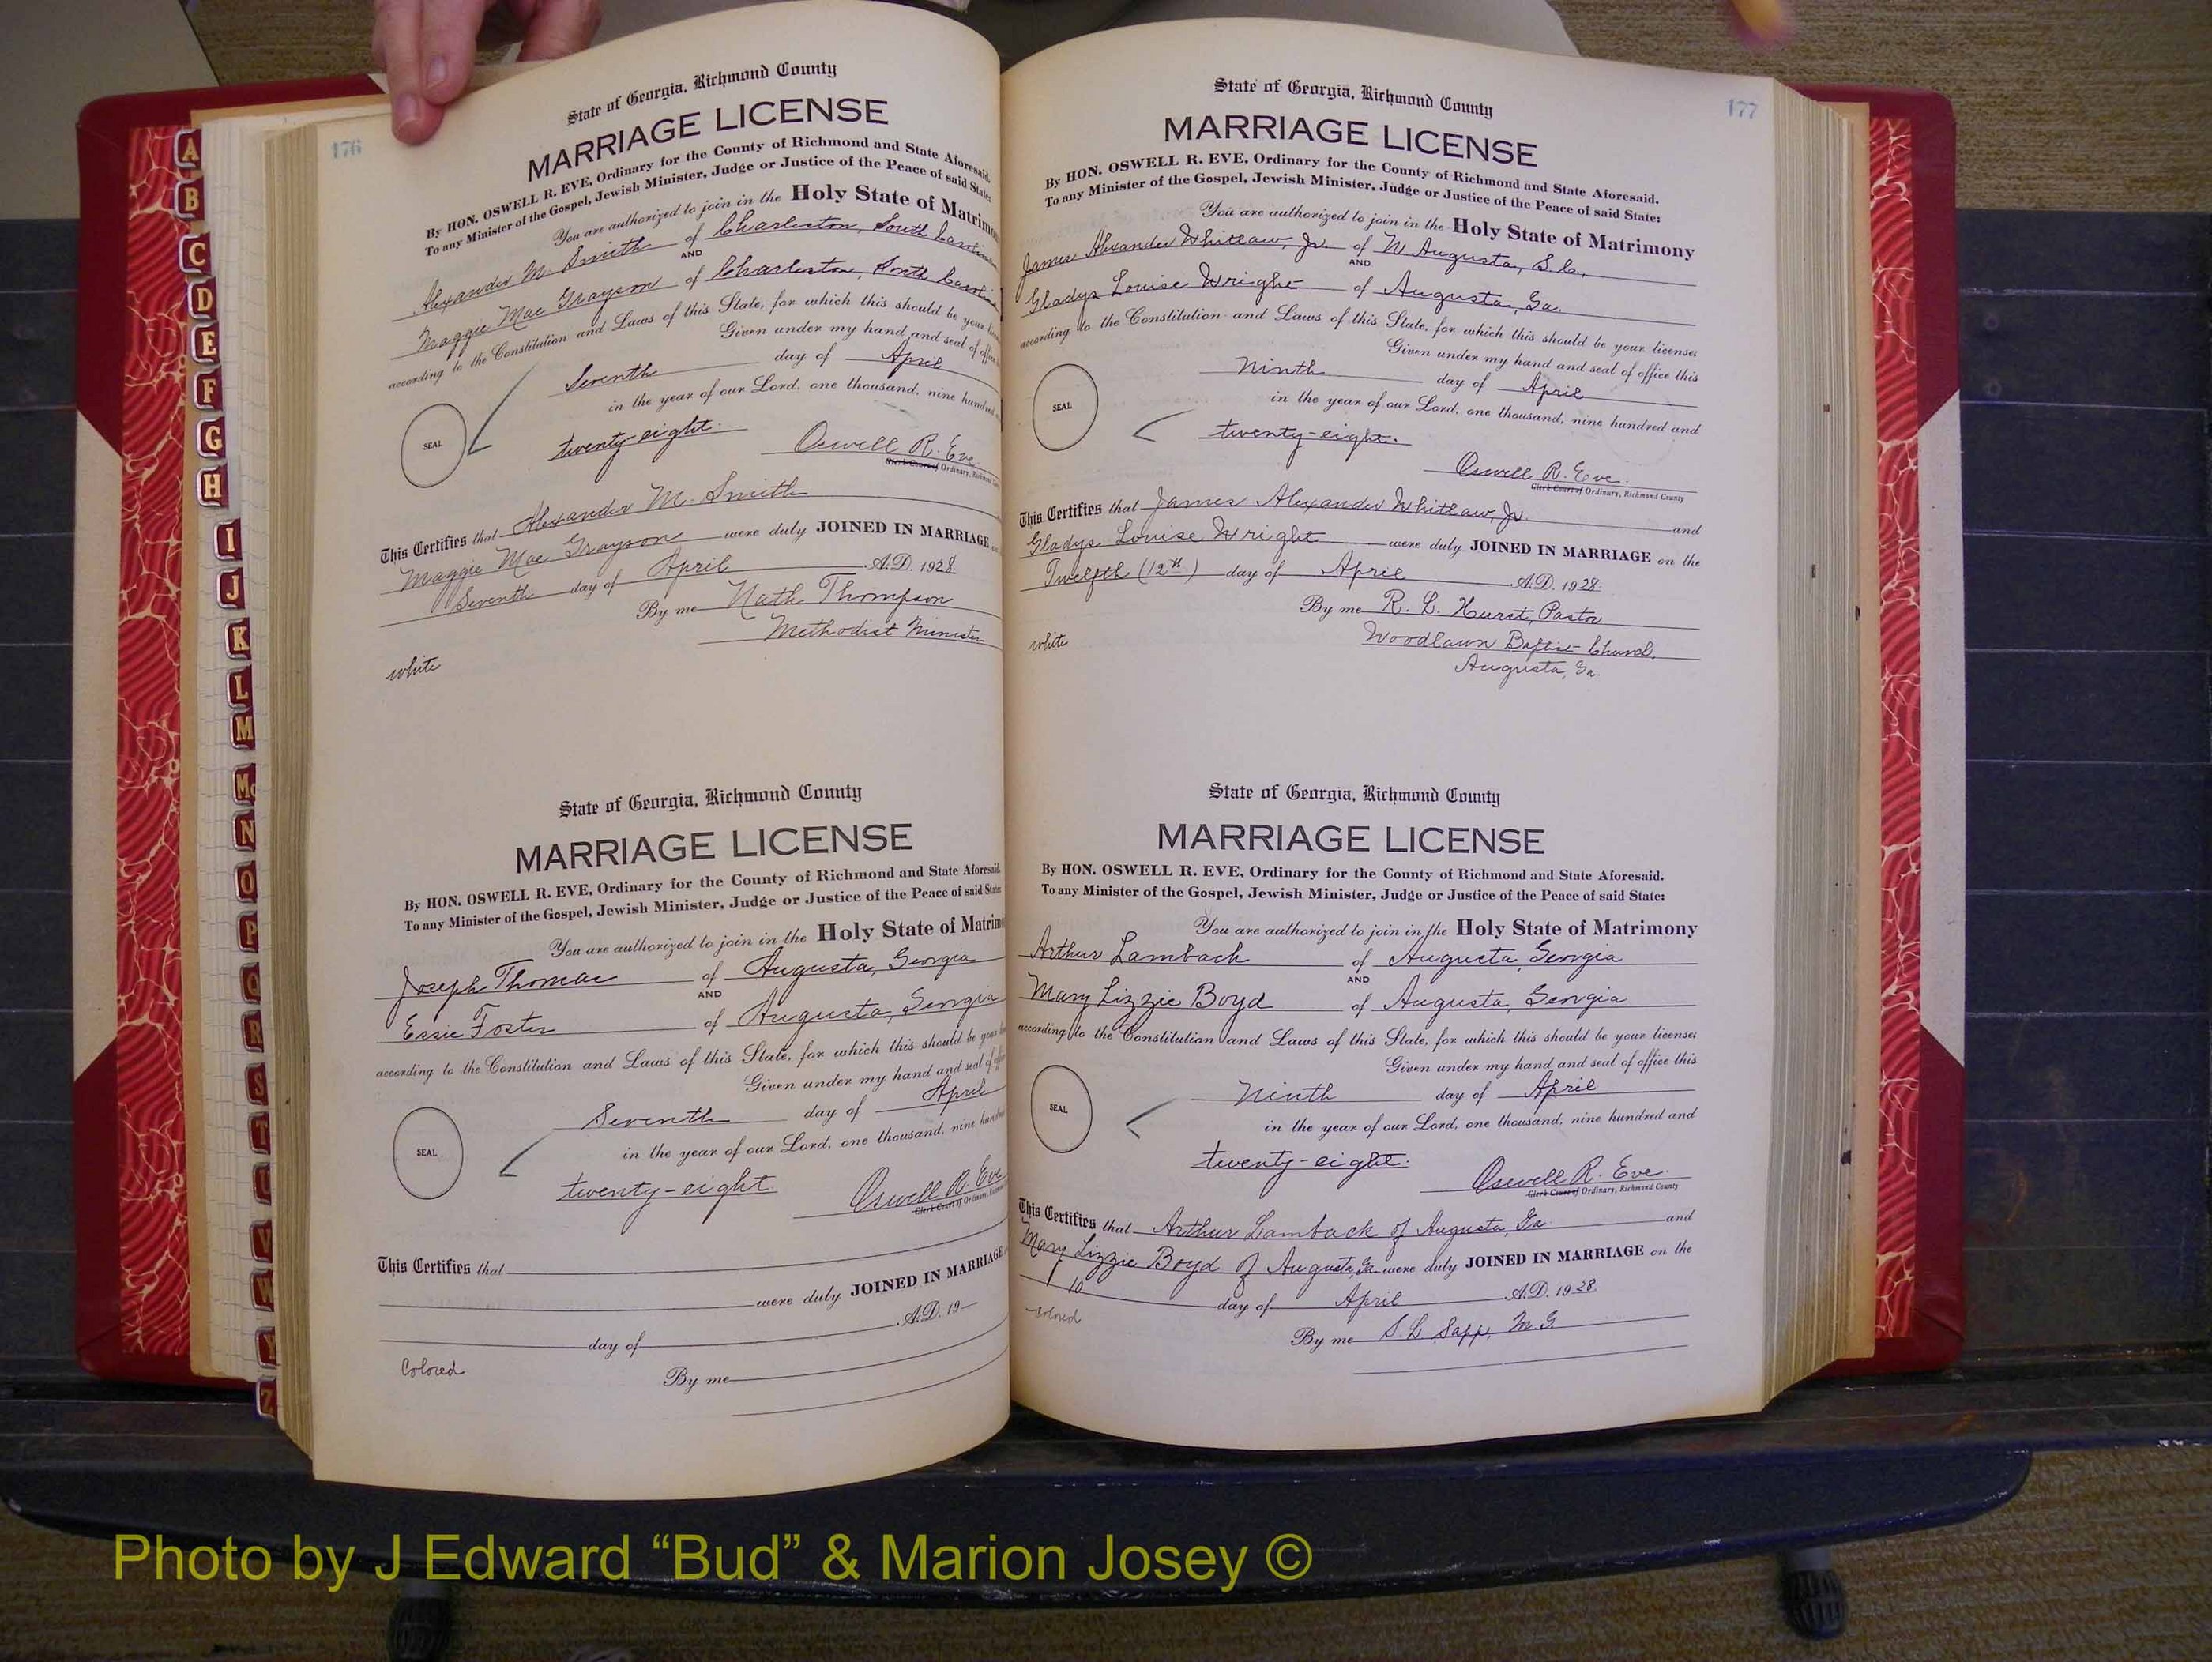 A
B
C
D
E
F
G
H
I
J
K
L
M
Mc
N
O
P
Q
R
S
T
U
V
W
Y
Z
176
State of Georgia, Richmond County
MARRIAGE LICENSE
By HON. OSWELL R. EVE, Ordinary for the County of Richmond and State Aforesaid.
To any Minister of the Gospel, Jewish Minister, Judge or Justice of the Peace of said State:
You are authorized to join in the Holy State of Matrimo
Alexander M. Smith of Charleston, South Carolina
AND
Maggie Mae Grayson of Charleston, South Carolina
according to the Constitution and Laws of this State, for which this should be your
Given under my hand and seal of office
Seventh day of April
in the year of our Lord, one thousand, nine hundred
SEAL
twenty-eight.
Oswell R. Eve
Clerk Court of Ordinary, Richmond
This Certifies that Alexander M. Smith
Maggie Mae Grayson were duly JOINED IN MARRIAGE
Seventh day of April A.D. 1928
By me Nath Thompson
Methodist Minister
white
State of Georgia, Richmond County
MARRIAGE LICENSE
By HON. OSWELL R. EVE, Ordinary for the County of Richmond and State Aforesaid.
To any Minister of the Gospel, Jewish Minister, Judge or Justice of the Peace of said State:
You are authorized to join in the Holy State of Matrim
Joseph Thomas of Augusta, Georgia
AND
Essie Foster of Augusta, Georgia
according to the Constitution and Laws of this State, for which this should be your
Given under my hand and seal of
Seventh day of April
in the year of our Lord, one thousand, nine hundred
SEAL
twenty-eight.
Oswell R. Eve
Clerk Court of Ordinary,
This Certifies that
were duly JOINED IN MARRIAGE
day of A.D. 19
Colored
By me
177
State of Georgia, Richmond County
MARRIAGE LICENSE
By HON. OSWELL R. EVE, Ordinary for the County of Richmond and State Aforesaid.
To any Minister of the Gospel, Jewish Minister, Judge or Justice of the Peace of said State:
You are authorized to join in the Holy State of Matrimony
James Alexander Whitlaw, Jr. of N Augusta, S.C.,
AND
Gladys Louise Wright of Augusta, Ga.
according to the Constitution and Laws of this State, for which this should be your licenses
Given under my hand and seal of office this
Ninth day of April
in the year of our Lord, one thousand, nine hundred and
SEAL
twenty-eight.
Oswell R. Eve.
Clerk Court of Ordinary, Richmond County
This Certifies that James Alexander Whitlaw, Jr. and
Gladys Louise Wright were duly JOINED IN MARRIAGE on the
Twelfth (12th) day of April A.D. 1928.
By me R. L. Hurst, Pastor
Woodlawn Baptist Church,
Augusta, Ga.
white
State of Georgia, Richmond County
MARRIAGE LICENSE
By HON. OSWELL R. EVE, Ordinary for the County of Richmond and State Aforesaid.
To any Minister of the Gospel, Jewish Minister, Judge or Justice of the Peace of said State:
You are authorized to join in the Holy State of Matrimony
Arthur Lamback of Augusta, Georgia
AND
Mary Lizzie Boyd of Augusta, Georgia
according to the Constitution and Laws of this State, for which this should be your licenses
Given under my hand and seal of office this
Ninth day of April
in the year of our Lord, one thousand, nine hundred and
SEAL
twenty-eight.
Oswell R. Eve.
Clerk Court of Ordinary, Richmond County
This Certifies that Arthur Lamback of Augusta, Ga and
Mary Lizzie Boyd of Augusta, Ga. were duly JOINED IN MARRIAGE on the
10 day of April A.D. 1928
Colored
By me S. L. Sapp, M.G.
Photo by J Edward “Bud” & Marion Josey ©